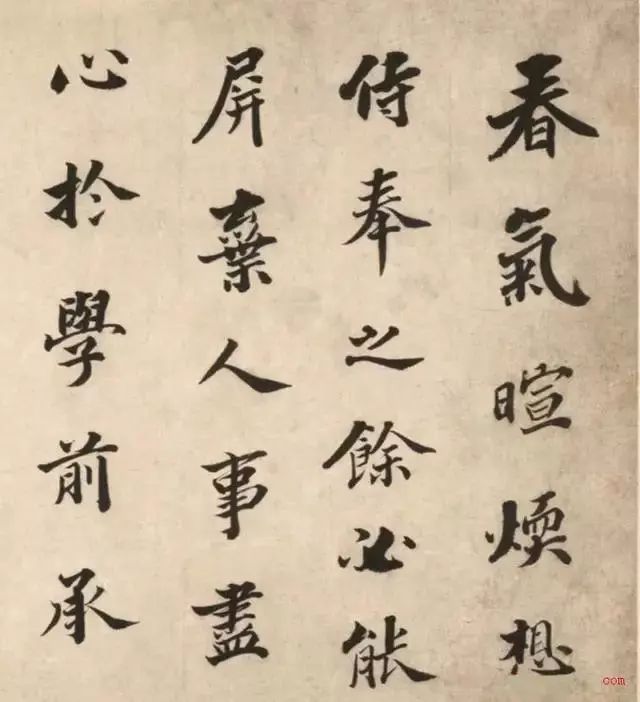 春氣暄煗想
侍奉之餘必能
屏棄人事盡
心於學前承
com